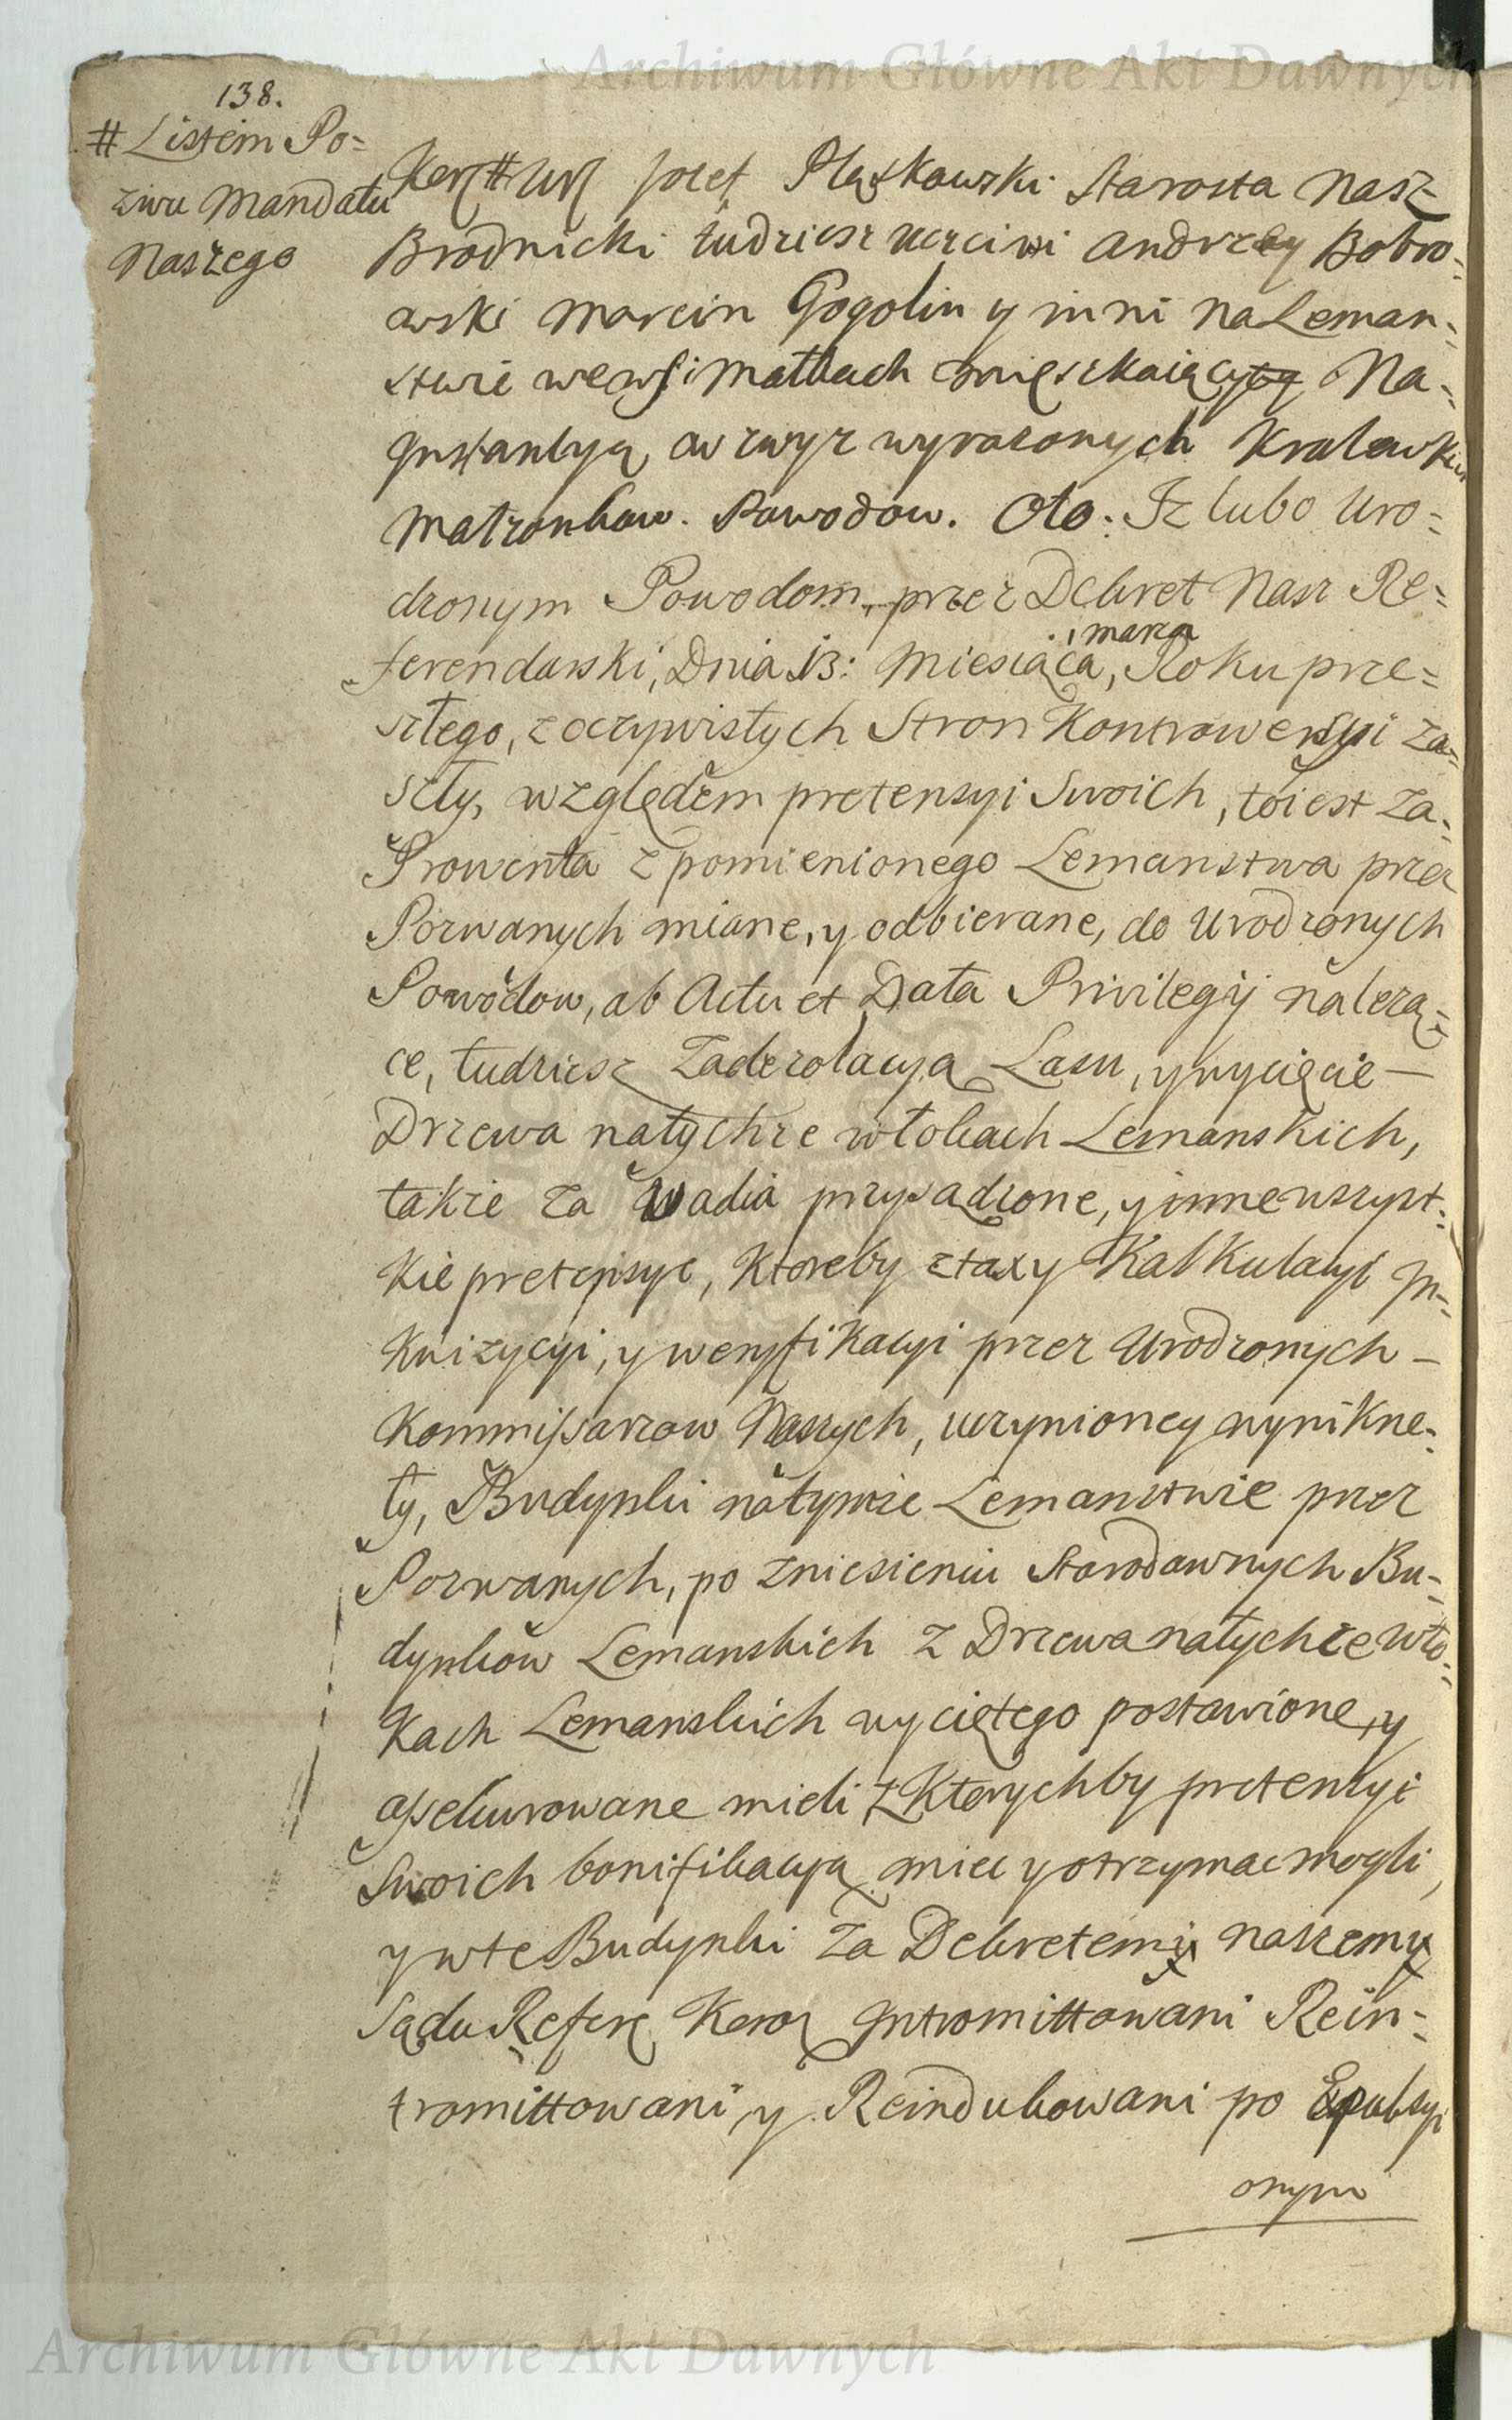 Archiwum Główne Akt Dawnych
138.
# Listem Po=
zwu Mandatu
Naszego
Kerſ # Urſ Jozef Pląskowski Starosta Nasz
Brodnicki tudziesz uczciwi Andrzey Bobro=
wski Marcin Gogolin y inni na Leman=
stwie we wsi Małkach mięszkaiący Na=
Jnstantyą wzwyz wyrazonych Kralewskich
Matzonkow. Powodow. Oto: Jz lubo Uro=
dzonym Powodom, przez Dekret Nasz Re=
ferendarski, Dnia 13: Miesiąca, marca Roku prze=
szłego, z oczywistych Stron Kontrowersyi za=
szły, względem pretensyi Swoich, toiest za=
Prowenta z pomienionego Lemanstwa przez
Pozwanych miane, y odbierane, do Urodzonych
Powodow, ab Actu et Data Privilegij nalezą=
ce, tudziesz za dezolacyą Lasu, y wycięcie —
Drzewa na tychze włokach Lemanskich,
takze za Wadia przysądzone, y inne wszyst=
kie pretensye, ktoreby z taxy Kalkulacyi Jn=
kwizycyi, y weryfikacyi przez Urodzonych —
Kommissarzow Naszych, uczynioney wynikne=
ły, Budynki na tymze Lemanstwie przez
Pozwanych, po zniesieniu Starodawnych Bu=
dynkow Lemanskich z Drzewa na tychze wło=
kach Lemanskich wyciętego postawione, y
assekurowane mieli z ktorychby pretensyi
Swoich bonifikacyą miec y otrzymac mogli,
y w te Budynki za Dekretem naszem
Sądu Referę Koroꝝ Jntromittowani Rein=
tromittowani, y Reindukowani po Expulsyi
onym
Archiwum Główne Akt Dawnych